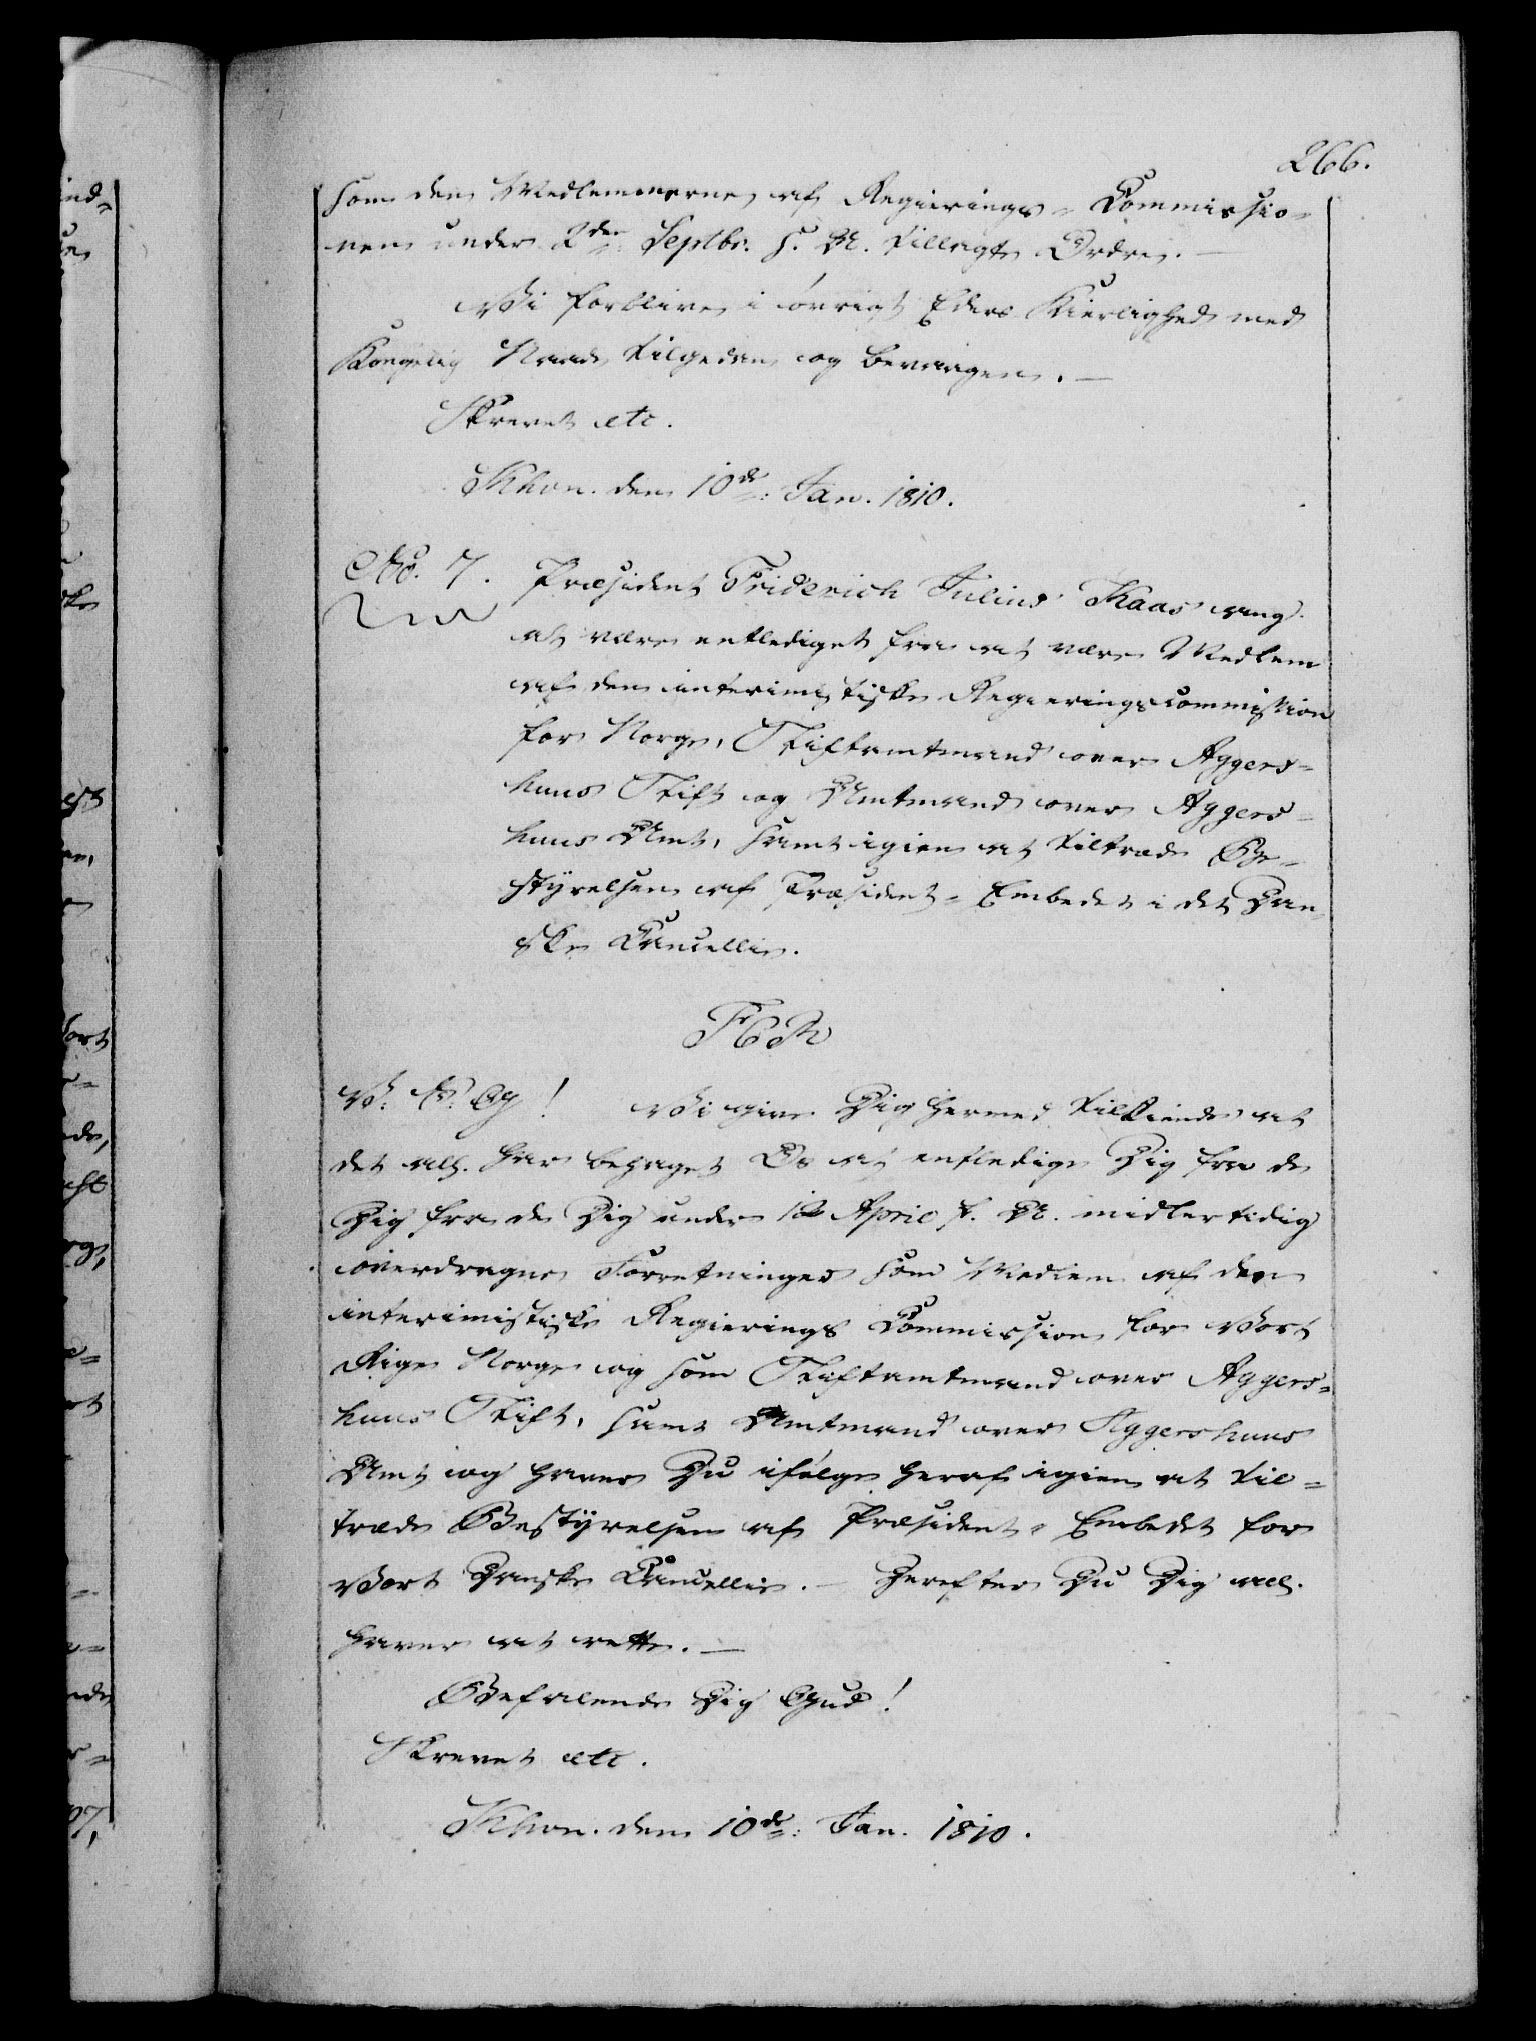 266.
som den Medlemmerne af Regierings-Commissio-
nen under 2den Septbr. f. A. tillagte Ordre. —
Vi forblive i øvrigt Eders Kierlighed med
Kongelig Naade tilgedan og bevaagen. —
Skrevet etc.
Khvn. den 10de: Jan. 1810.
No. 7. Præsident Friderich Julius Kaas ang.
at være entlediget fra at være Medlem
af den interimistiske Regieringscommission
for Norge, Stiftamtmand over Aggers-
huus Stift og Amtmand over Aggers-
huus Amt, samt igien at tiltræde Be-
styrelsen af Præsident-Embedet i det Dan-
ske Cancellie.
F6R
V. G. Og! Vi give Dig hermed tilkiende at
det all. har behaget Os at entledige Dig fra de
Dig fra de Dig under 12 April f. A. midlertidig
overdragne Forretninger som Medlem af den
interimistiske Regierings Commission for Vort
Rige Norge og som Stiftamtmand over Aggers-
huus Stift, samt Amtmand over Aggershuus
Amt og haver Du ifølge heraf igien at til-
træde Bestyrelsen af Præsident-Embedet for
Vort Danske Cancellie. — Herefter Du Dig all.
haver at rette. —
Befalende Dig Gud!
Skrevet etc.
Khvn. den 10de: Jan. 1810.